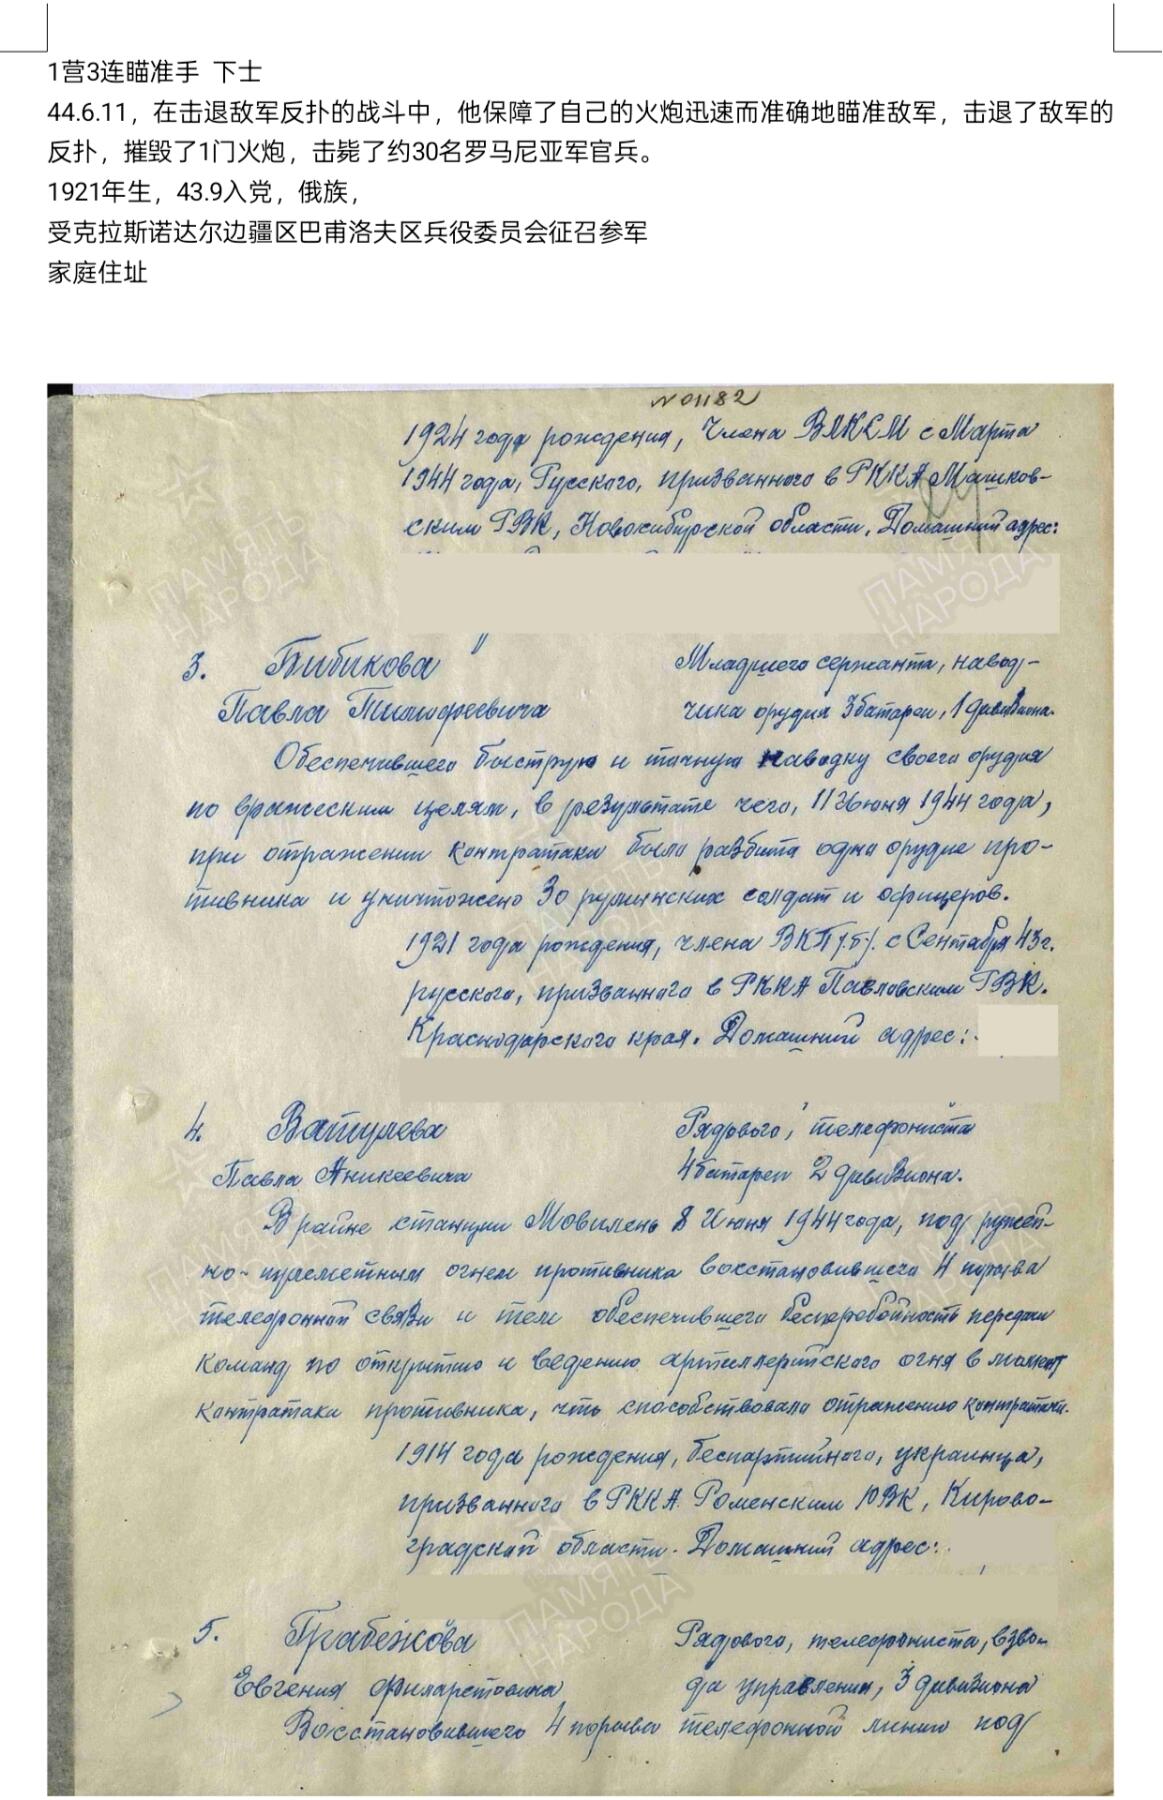 1营3连瞄准手 下士
44.6.11，在击退敌军反扑的战斗中，他保障了自己的火炮迅速而准确地瞄准敌军，击退了敌军的
反扑，摧毁了1门火炮，击毙了约30名罗马尼亚军官兵。
1921年生，43.9入党，俄族，
受克拉斯诺达尔边疆区巴甫洛夫区兵役委员会征召参军
家庭住址
N 01182
1924 года рождения, Члена ВЛКСМ с Марта
1944 года, Русского, призванного в РККА Машков-
ским РВК, Новосибирской области, Домашний адрес:
3. Бибикова Младшего сержанта, навод-
Павла Тимофеевича чика орудия 3 батареи, 1 дивизиона.
Обеспечившего быструю и точную наводку своего орудия
по вражеским целям, в результате чего, 11 Июня 1944 года,
при отражении контратаки было разбито одно орудие про-
тивника и уничтожено 30 румынских солдат и офицеров.
1921 года рождения, члена ВКП(б). с Сентября 43 г.
русского, призванного в РККА Павловским РВК.
Краснодарского края. Домашний адрес:
4. Ватулева Рядового, телефониста
Павла Аникеевича 4 батареи 2 дивизиона.
В районе станции Мовилень 8 Июня 1944 года, под ружей-
но-пулеметным огнем противника восстановившего 4 порыва
телефонной связи и тем обеспечившего бесперебойность передачи
команд по открытию и ведению артиллерийского огня в момент
контратаки противника, что способствовало отражению контратаки.
1914 года рождения, беспартийного, украинца,
призванного в РККА Роменским РВК, Кирово-
градской области. Домашний адрес:
5. Грабежова Рядового, телефониста, взво-
Евгения Филаретовича да управления, 3 дивизиона
Восстановившего 4 порыва телефонной линии под
ПАМЯТЬ
НАРОДА